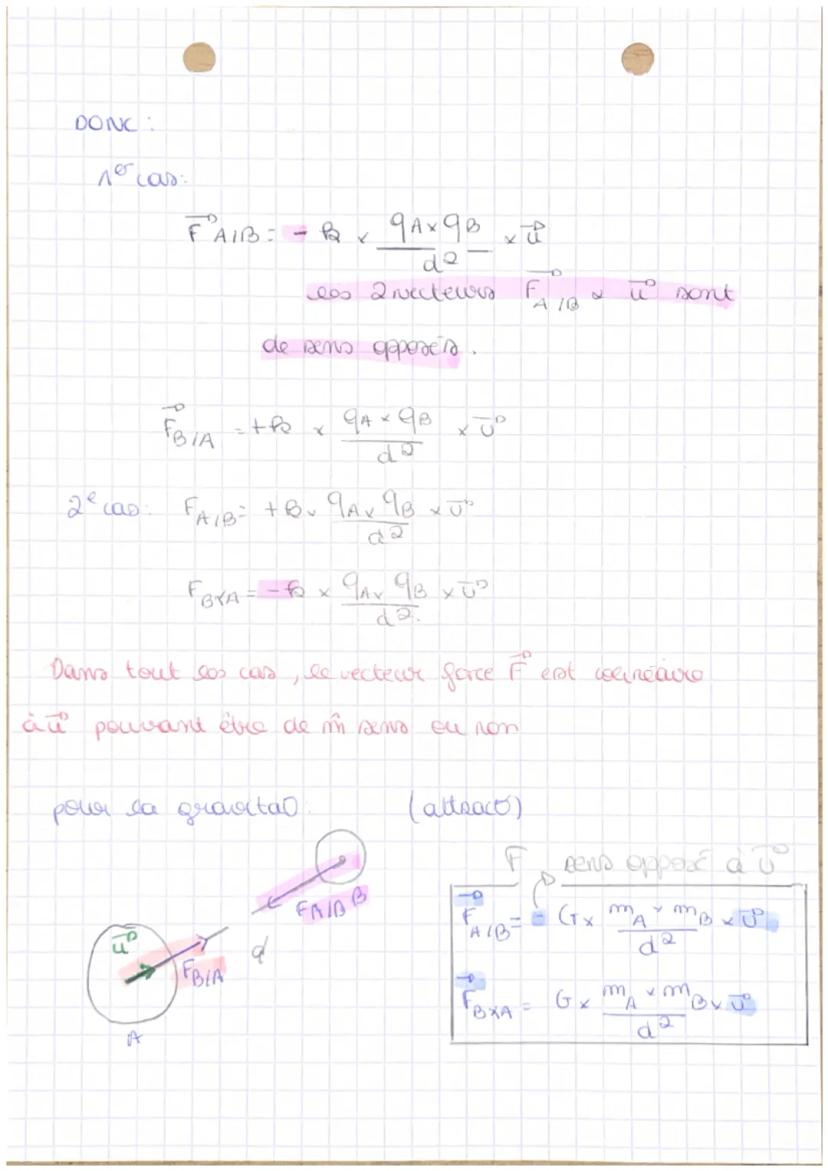 DONC :
1er cas:
F⃗ A/B = - k × qA × qB / d² × u⃗
les 2 vecteurs F⃗ A/B & u⃗ sont
de sens opposés.
F⃗ B/A = +k × qA × qB / d² × u⃗
2e cas: F A/B = +k × qA × qB / d² × u⃗
F B/A = -k × qA × qB / d² × u⃗
Dans tout les cas, le vecteur force F⃗ est colinéaire
à u⃗ pouvant être de m̂ sens ou non
pour la gravitaO: (attractO)
F sens opposé à u⃗
F⃗ A/B = - G × mA × mB / d² × u⃗
F⃗ B/A = G × mA × mB / d² × u⃗
F A/B B
u⃗
F B/A
d
A